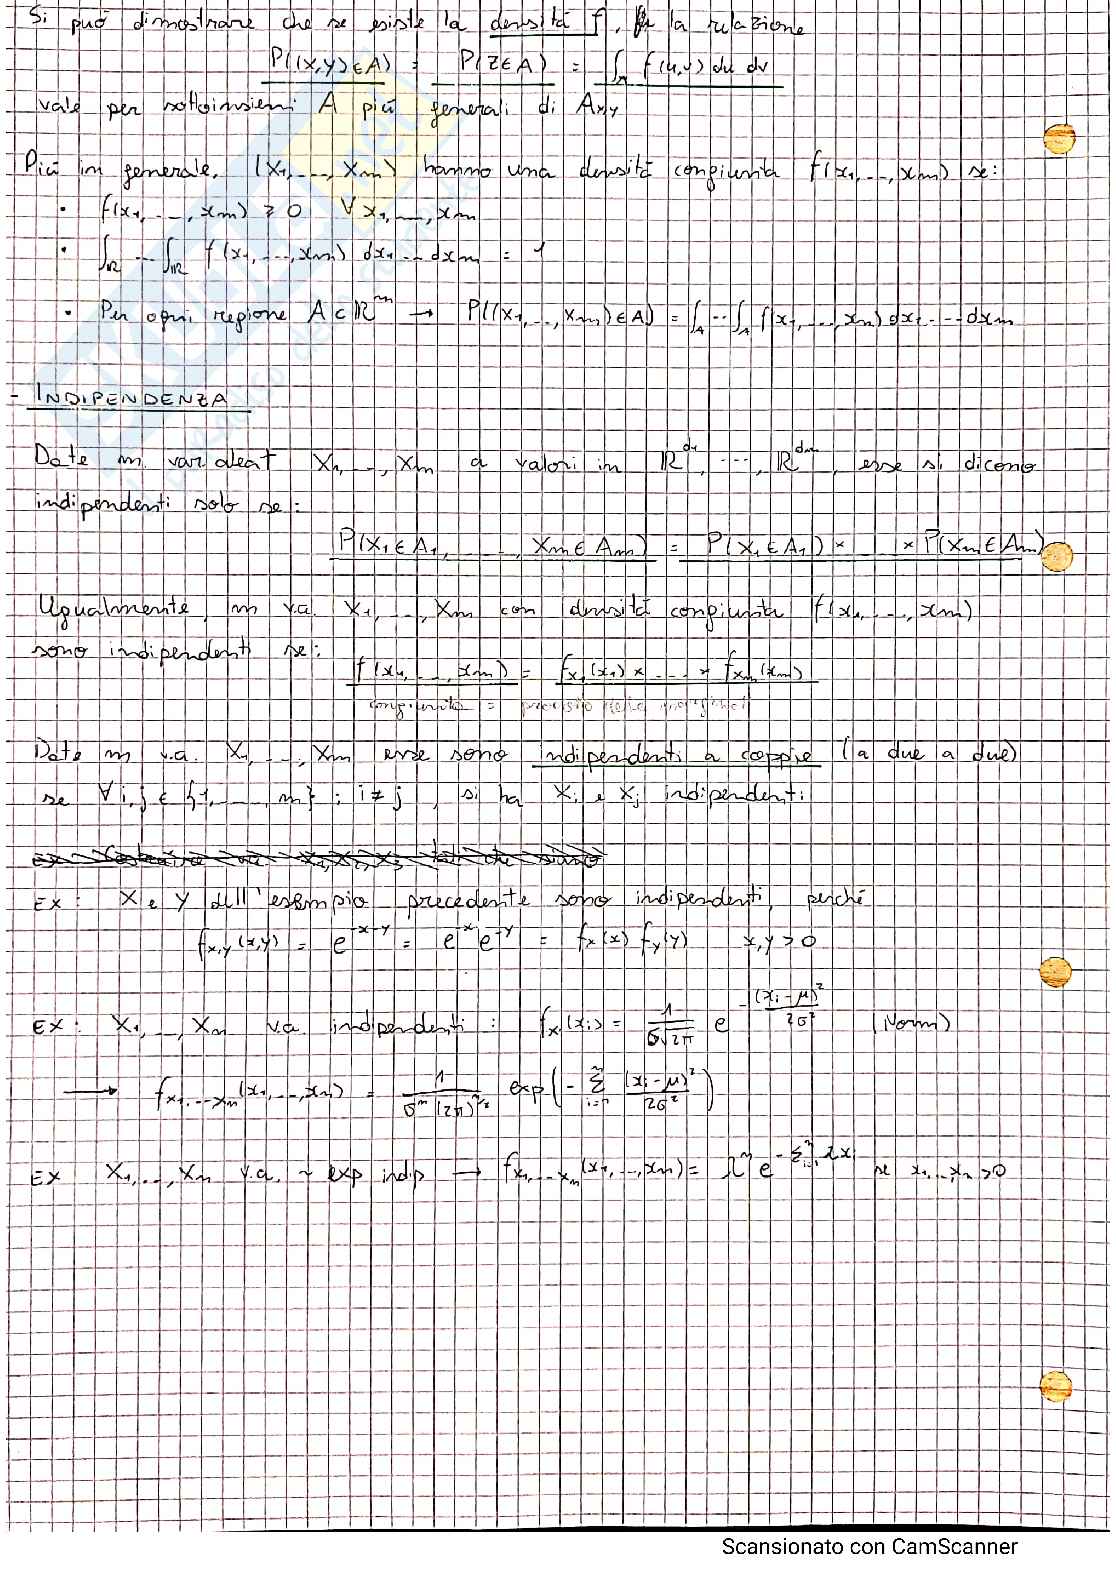 Si può dimostrare che se esiste la densità f, la relazione
P((X,Y)∈A) = P(Z∈A) = ∫_A f(u,v) du dv
vale per sottoinsiemi A più generali di A_{x,y}
Più in generale, (X₁,...,Xₙ) hanno una densità congiunta f(x₁,...,xₙ) se:
• f(x₁,...,xₙ) ≥ 0 ∀ x₁,...,xₙ
• ∫_ℝ ... ∫_ℝ f(x₁,...,xₙ) dx₁...dxₙ = 1
• Per ogni regione A⊂ℝⁿ → P((X₁,...,Xₙ)∈A) = ∫_A ... ∫_A f(x₁,...,xₙ) dx₁...dxₙ
- INDIPENDENZA
Date n var. aleat X₁,...,Xₙ a valori in ℝ^{d₁},...,ℝ^{dₙ}, esse si dicono
indipendenti solo se:
P(X₁∈A₁,......,Xₙ∈Aₙ) = P(X₁∈A₁) × ... × P(Xₙ∈Aₙ)
Ugualmente, n v.a. X₁,...,Xₙ con densità congiunta f(x₁,...,xₙ)
sono indipendenti se:
f(x₁,...,xₙ) = f_{X₁}(x₁) × .... × f_{Xₙ}(xₙ)
congiunta = prodotto delle marginali
Date n v.a. X₁,...,Xₙ esse sono indipendenti a coppie (a due a due)
se ∀ i,j ∈ {1,...,n} : i≠j, si ha Xᵢ e Xⱼ indipendenti
EX: X e Y dell'esempio precedente sono indipendenti, perché
f_{X,Y}(x,y) = e^{-x-y} = e^{-x}e^{-y} = f_X(x) f_Y(y) x,y>0
EX: X₁,...,Xₙ v.a. indipendenti : f_{Xᵢ}(xᵢ) = 1/(σ√2π) e^{-(xᵢ-μ)²/2σ²} (Norm)
→ f_{X₁...Xₙ}(x₁,...,xₙ) = 1/(σⁿ(2π)^{n/2}) exp(-Σ_{i=1}^n (xᵢ-μ)²/2σ²)
EX X₁,...,Xₙ v.a. ~ exp indip → f_{X₁...Xₙ}(x₁,...,xₙ) = λⁿ e^{-Σ_{i=1}^n λxᵢ} se x₁,...,xₙ>0
Scansionato con CamScanner